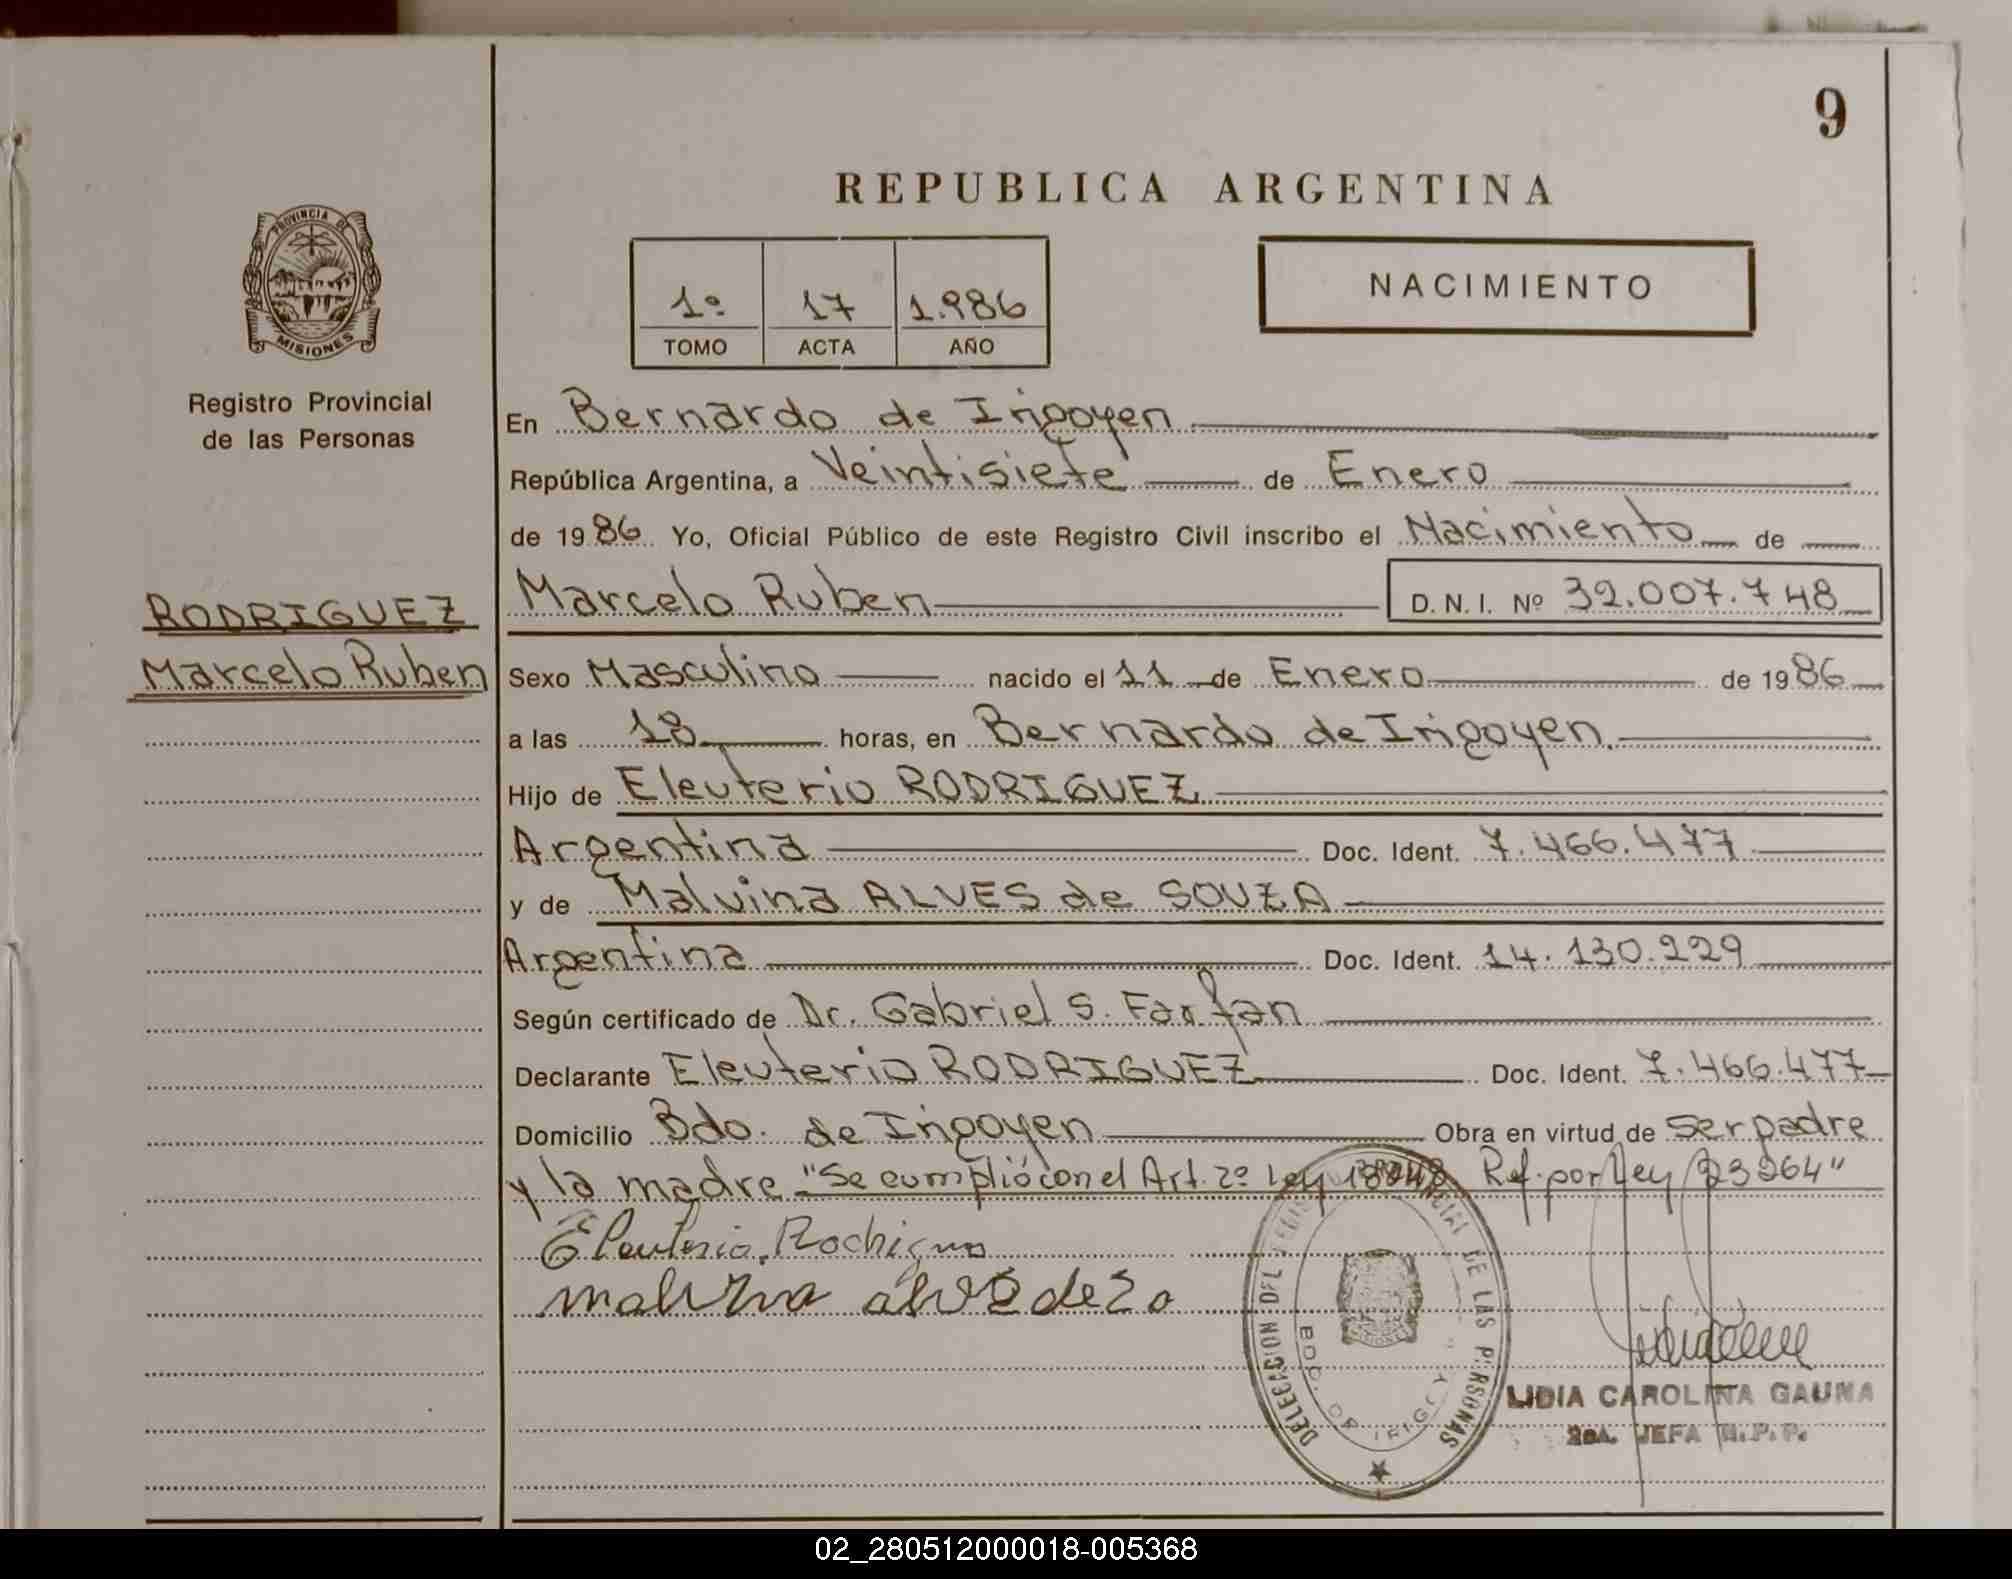 9
REPUBLICA ARGENTINA
PROVINCIA DE
MISIONES
1º 17 1.986
TOMO ACTA AÑO
NACIMIENTO
Registro Provincial
de las Personas
RODRIGUEZ
Marcelo Ruben
En Bernardo de Irigoyen
República Argentina, a Veintisiete de Enero
de 1986 Yo, Oficial Público de este Registro Civil inscribo el Nacimiento de
Marcelo Ruben D. N. I. Nº 32.007.748
Sexo Masculino nacido el 11 de Enero de 1986
a las 18 horas, en Bernardo de Irigoyen.
Hijo de Eleuterio RODRIGUEZ
Argentina Doc. Ident. 7.466.477
y de Malvina ALVES de SOUZA
Argentina Doc. Ident. 14.130.229
Según certificado de Dr. Gabriel S. Farfan
Declarante Eleuterio RODRIGUEZ Doc. Ident. 7.466.477
Domicilio Bdo. de Irigoyen Obra en virtud de ser padre
y la madre "Se cumplió con el Art. 2º Ley 18248 Ref. por Ley 23264"
DELEGACION DEL REGISTRO PROVINCIAL DE LAS PERSONAS
BDO. DE IRIGOYEN
LIDIA CAROLINA GAUNA
2da. JEFA R.P.P.
02_280512000018-005368